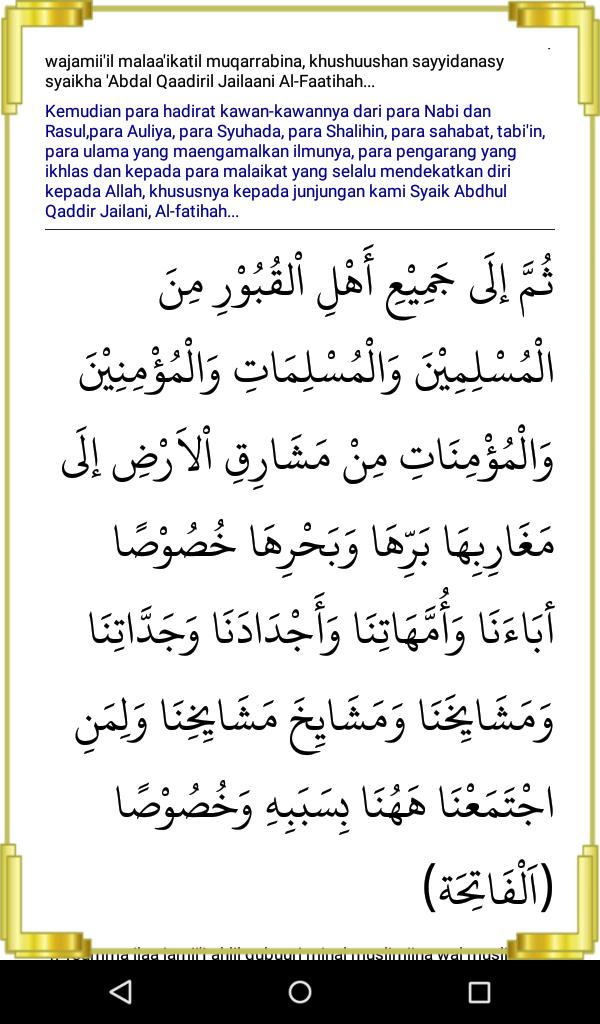 wajamii'il malaa'ikatil muqarrabina, khushuushan sayyidanasy
syaikha 'Abdal Qaadiril Jailaani Al-Faatihah...
Kemudian para hadirat kawan-kawannya dari para Nabi dan
Rasul,para Auliya, para Syuhada, para Shalihin, para sahabat, tabi'in,
para ulama yang maengamalkan ilmunya, para pengarang yang
ikhlas dan kepada para malaikat yang selalu mendekatkan diri
kepada Allah, khususnya kepada junjungan kami Syaik Abdhul
Qaddir Jailani, Al-fatihah...
ثُمَّ إلَى جَمِيْعِ أَهْلِ اْلقُبُوْرِ مِنَ
الْمُسْلِمِيْنَ وَالْمُسْلِمَاتِ وَالْمُؤْمِنِيْنَ
وَالْمُؤْمِنَاتِ مِنْ مَشَارِقِ اْلاَرْضِ إلَى
مَغَارِبِهَا بَرِّهَا وَبَحْرِهَا خُصُوْصًا
أبَاءَنَا وَأُمَّهَاتِنَا وَأَجْدَادَنَا وَجَدَّاتِنَا
وَمَشَايِخَنَا وَمَشَايِخَ مَشَايِخِنَا وَلِمَنِ
اجْتَمَعْنَا هَهُنَا بِسَبَبِهِ وَخُصُوْصًا
(اَلْفَاتِحَة)